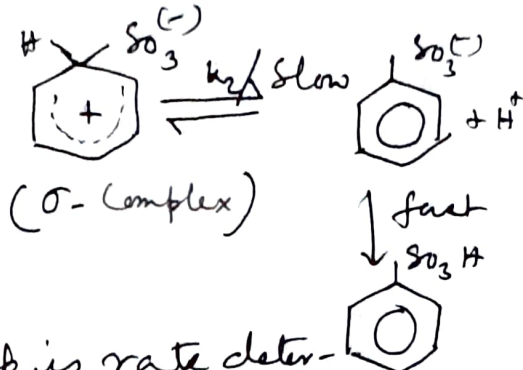 H SO₃⁽⁻⁾
+ k₂/Δ Slow SO₃⁽⁻⁾
+ H⁺
(σ- Complex) fast
SO₃ H
is rate deter-